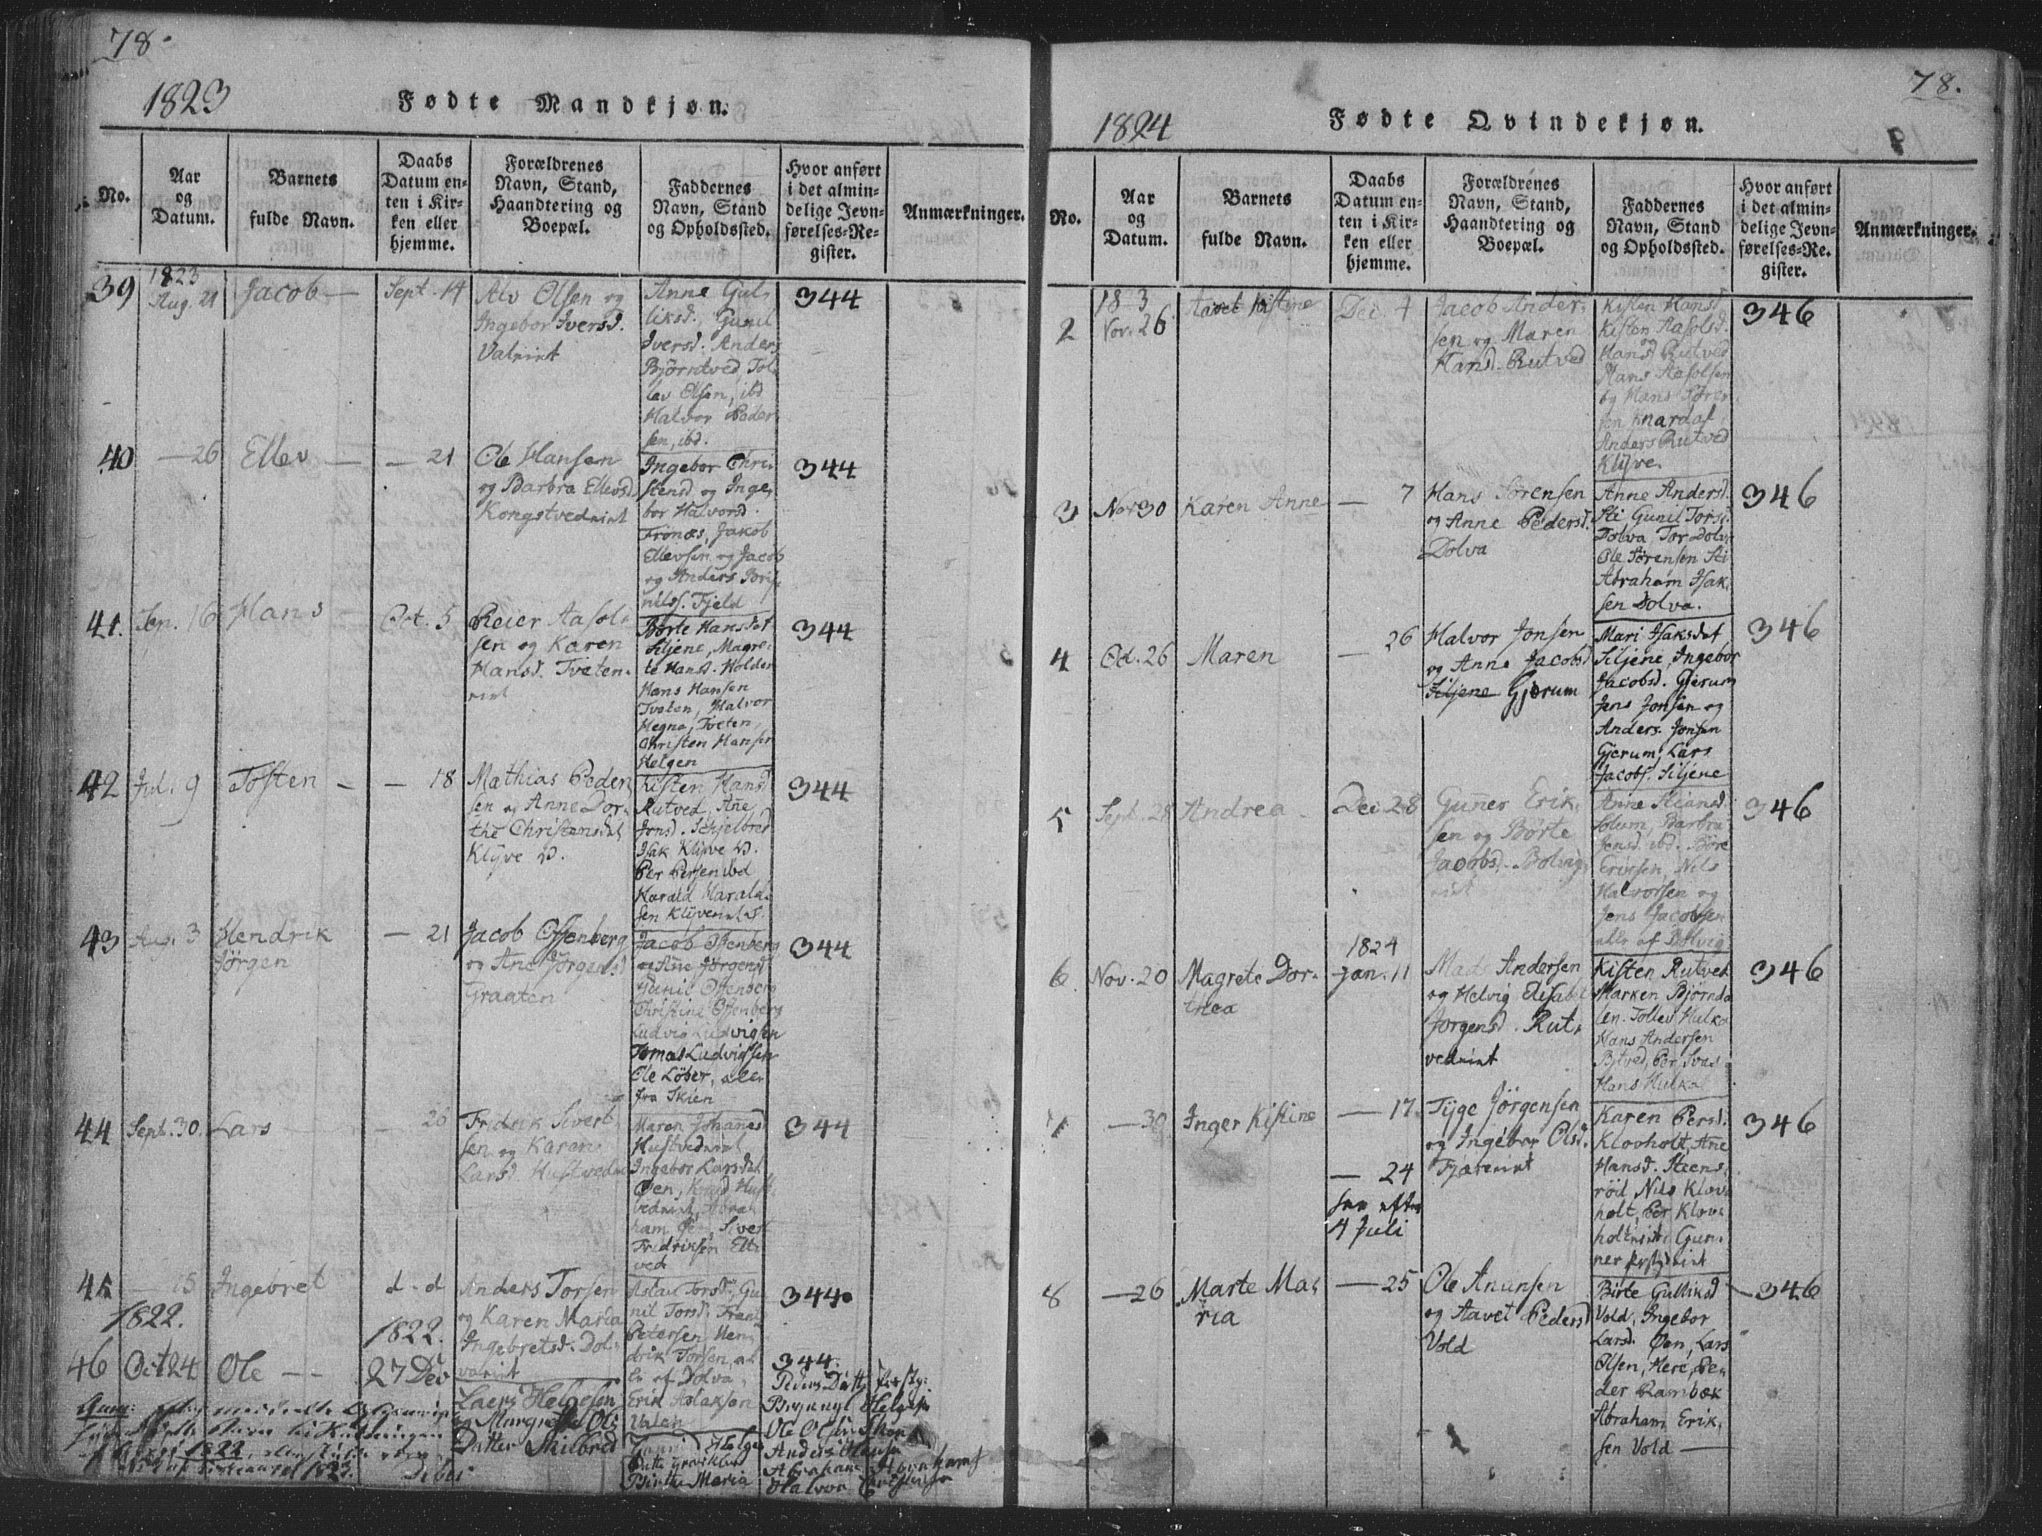 78.
1823
Fødte Mandkjøn.
No.
Aar og Datum.
Barnets fulde Navn.
Daabs Datum enten i Kirken eller hjemme.
Forældrenes Navn, Stand, Haandtering og Boepæl.
Faddernes Navn, Stand og Opholdssted.
Hvor anført i det almindelige Jevnførelses-Register.
Anmærkninger.
39
1823
Aug. 21
Jacob
Sept. 14
Alv Olsen og
Ingebor Iversd.
Valnint
Anne Gul-
liksd. Gunil
Iversd. Anders
Bjørntved, Tol-
lav Olsen, ibd
Halvor Peder-
sen, ibd.
344
40
— 26
Ellev
— 21
Ole Hansen
og Barbra Ellevsd.
Kongstvednint
Ingebor Chri-
stensd og Inge-
bor Halvorsd.
Frönæs, Jakob
Ellevsen og Jacob
og Anders
Fjeld
344
41.
Sep. 16
Hans
Oct. 5
Reier Aasol-
sen og Karen
Hansd. Tveten-
nint
Børte Hansdat
Siljene, Magre-
te Hansd. Holden
Hans Hansen
Tveten, Halvor
Hegna, Tveten,
Christen Hansen
Helgen
344
42
Jul. 9
Tosten
— 18
Mathias Peder-
sen og Anne Dor-
the Christensdat
Klyve
Kisten Hansd
Rutved. Ane
Jonsd. Schjelbred
Isak Klyve
Per Persen ibd
Harald Haralds-
sen
344
43
Aug. 3
Hendrik
Jørgen
— 21
Jacob Offenberg
og Ane Jörgensd
Graaten
Jacob Offenberg
og Ane Jørgensd
Gunil Offenberg
Christine Offenberg
Ludvig Ludvigsen
Tomas Ludvigssen
Ole Löber, alle
fra Skien
344
44
Sept. 30
Lars
— 26
Fredrik Sivert-
sen og Karen
Larsd. Hustved
Maren Johanesd
Hustvednint
Ingebor Larsdat
Øen, Knud Hust-
vednint, Abra-
ham Øen, Sivert
Fredriksen Elt-
ved
344
45
— 15
Ingebret
d - d
Anders Torsen
og Karen Maria
Ingebretsd. Dol-
vanint
Aslau Torsd, Gu-
nil Torsd,
Petersen Hen-
drik Torsen, al-
le af Dolva,
Erik Aslaksen
Valen
344.
1822.
46
Oct 24
Ole
1822.
27 Dec
Laers Helgesen
og Margrethe Ols
Datter Skilbred
344.
Helges
Datter
Birthe Maria
Peders Datt
Helgesen
Ole Olsen
Anders Hansen
Abraham
Halvor Christensen
1822
78.
1824
Fødte Qvindekjøn.
No.
Aar og Datum.
Barnets fulde Navn.
Daabs Datum enten i Kirken eller hjemme.
Forældrenes Navn, Stand, Haandtering og Boepæl.
Faddernes Navn, Stand og Opholdssted.
Hvor anført i det almindelige Jevnførelses-Register.
Anmærkninger.
2
18 3
Nov. 26
Aavet Kistine
Dec. 7
Jacob Ander-
sen og Maren
Hansd. Rutved
Kisten Hansd
Kisten Aasolsd.
og
Hans Rutved
Hans Aasolsen
og Hans Sören-
sen
Anders Rutved
Klyve.
346
3
Nov 30
Karen Anne
— 7
Hans Sørensen
og Anne Pedersd.
Dolva
Anne Andersd.
Sti Gunil Torsd.
Dolva, Tor Dolva
Ole Sørensen Sti
Abraham Isak-
sen Dolva.
346
4
Oct. 26
Maren
— 26
Halvor Jonsen
og Anne Jacobsd
Siljene Gjerum
Mari Isaksdat
Siljene, Ingebor
Jacobsd. Gjerum
Jens Jonsen og
Anders Jonsen
Gjerum, Lars
Jacobs. Siljene
346
5
Sept. 28
Andrea
Dec 28
Guner Erik-
sen og Børte
Jacobsd. Bolvig-
Anne Stiansd.
Solum, Barbra
Jensd. ibd. Böre
Eriksen, Nils
Halvorsen og
Jens Jacobsen
alle af Bolvig
346
6
Nov. 20
Magrete Dor-
thea
1824
Jan. 11
Mads Andersen
og Helvig Elisabt
Jorgensd. Rut-
vednint
Kisten Rutved
Marken Bjørnda-
len. Tollev Hulka
Hans Andersen
Bytved, Per
Hans Hulka
346
7
— 30
Inger Kistine
— 17.
Tyge Jörgensen
og Ingebor Olsd.
Fjærenint
Karen Persd.
Klovholt, Ane
Hansd. Steens-
rød, Nils Klov-
holt, Per Klov-
holtnint, Gun-
ner
346
— 24
see efter
4 Juli
8
— 26
Marte Ma-
ria
— 25
Ole Anunsen
og Aavet Pedersd
Vold
Birte Gulliksd
Vold, Ingebor
Larsd. Øen, Lars
Olsen, Here, Pe-
der Rambæk
Abraham Erik-
sen Vold
346